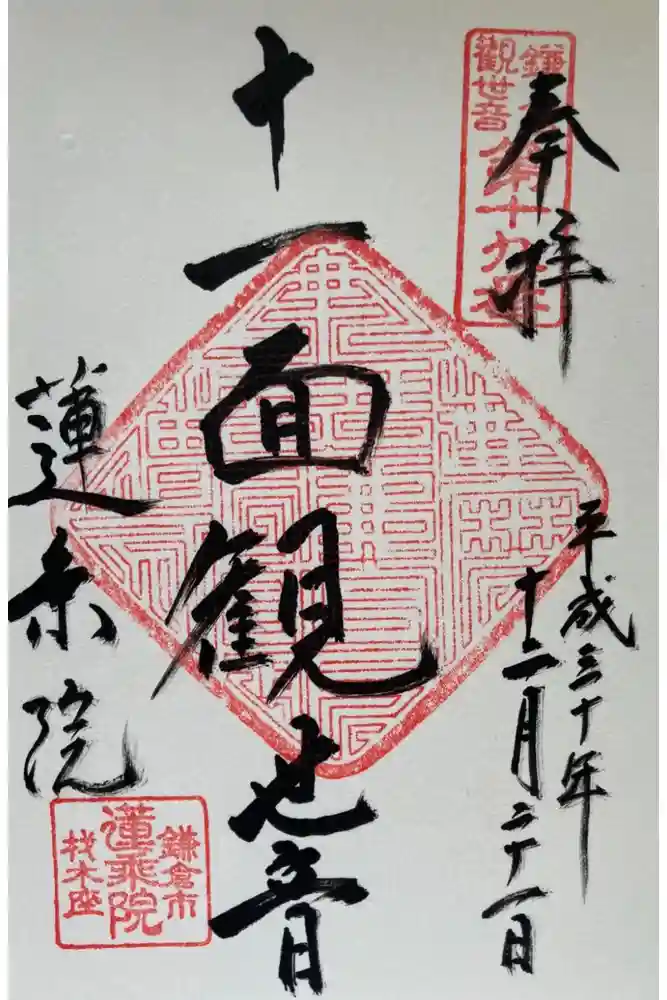 奉拝
鎌
観世音
第十九番
平成三十年
十二月二十一日
十一面観世音
蓮乗院
鎌倉市
蓮乗院
材木座